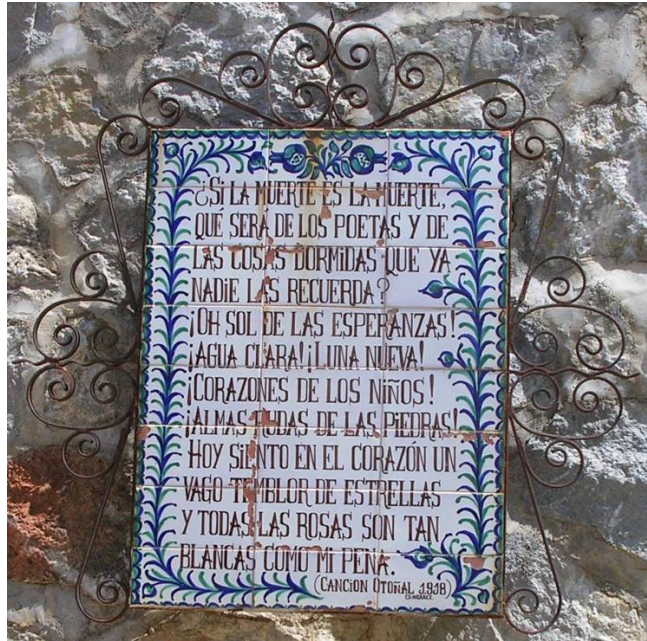 ¿SI LA MUERTE ES LA MUERTE,
QUÉ SERÁ DE LOS POETAS Y DE
LAS COSAS DORMIDAS QUE YA
NADIE LAS RECUERDA?
¡OH SOL DE LAS ESPERANZAS!
¡AGUA CLARA! ¡LUNA NUEVA!
¡CORAZONES DE LOS NIÑOS!
¡ALMAS RUDAS DE LAS PIEDRAS!
HOY SIENTO EN EL CORAZÓN UN
VAGO TEMBLOR DE ESTRELLAS
Y TODAS LAS ROSAS SON TAN
BLANCAS COMO MI PENA.
(CANCIÓN OTOÑAL 1918)